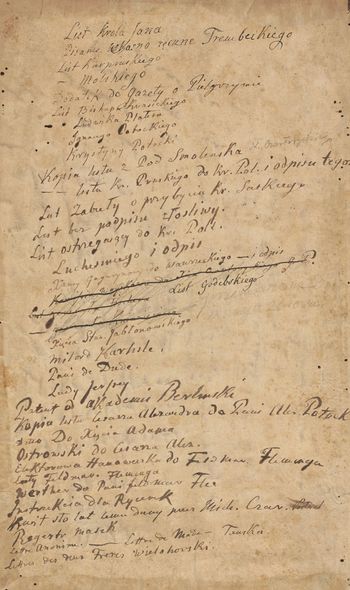 List Króla Jana
Pisanie własno ręczne Trembeckiego
List Karpińskiego
— Wolskiego
Dodatek do gazety o Pielgrzymie
List Biskupa Krasickiego
Ludwika Platera
Ignacego Potockiego
Krystyny Potocki
Kopia listu z Pod Smolenska
— listu Kr. Pruskiego do Kr. Pol. i odpisu tego
List Zabiely o przybyciu Kr. Saskiego
List bez podpisu złosliwy.
List ostregaiący do Kr. Pol.
Luchesiniego i odpis
— i odpis
List Godebskiego
Xięcia Stan. Jabłonowskiego
milord Karlisle.
Pani de Dude.
Lady Jersey
Patent od Akademii Berlinski
Kopia listu Cesarza Alexandra do Pani Alex. Potock
dito Do Xięcia Adama
Ostrowski do Cesarza Alex.
Elektorowa Hanowerska do Feldmar. Fleminga
Listy Feldmar. Fleminga
Werther do Pani feldmar Fle
Instrukcia dla Rycerek
sto lat temu dany przez Xcia Czar.
Regestr masek
Listu Anonime. — Lettre de
Lettres des deux Freres Wielohorski.